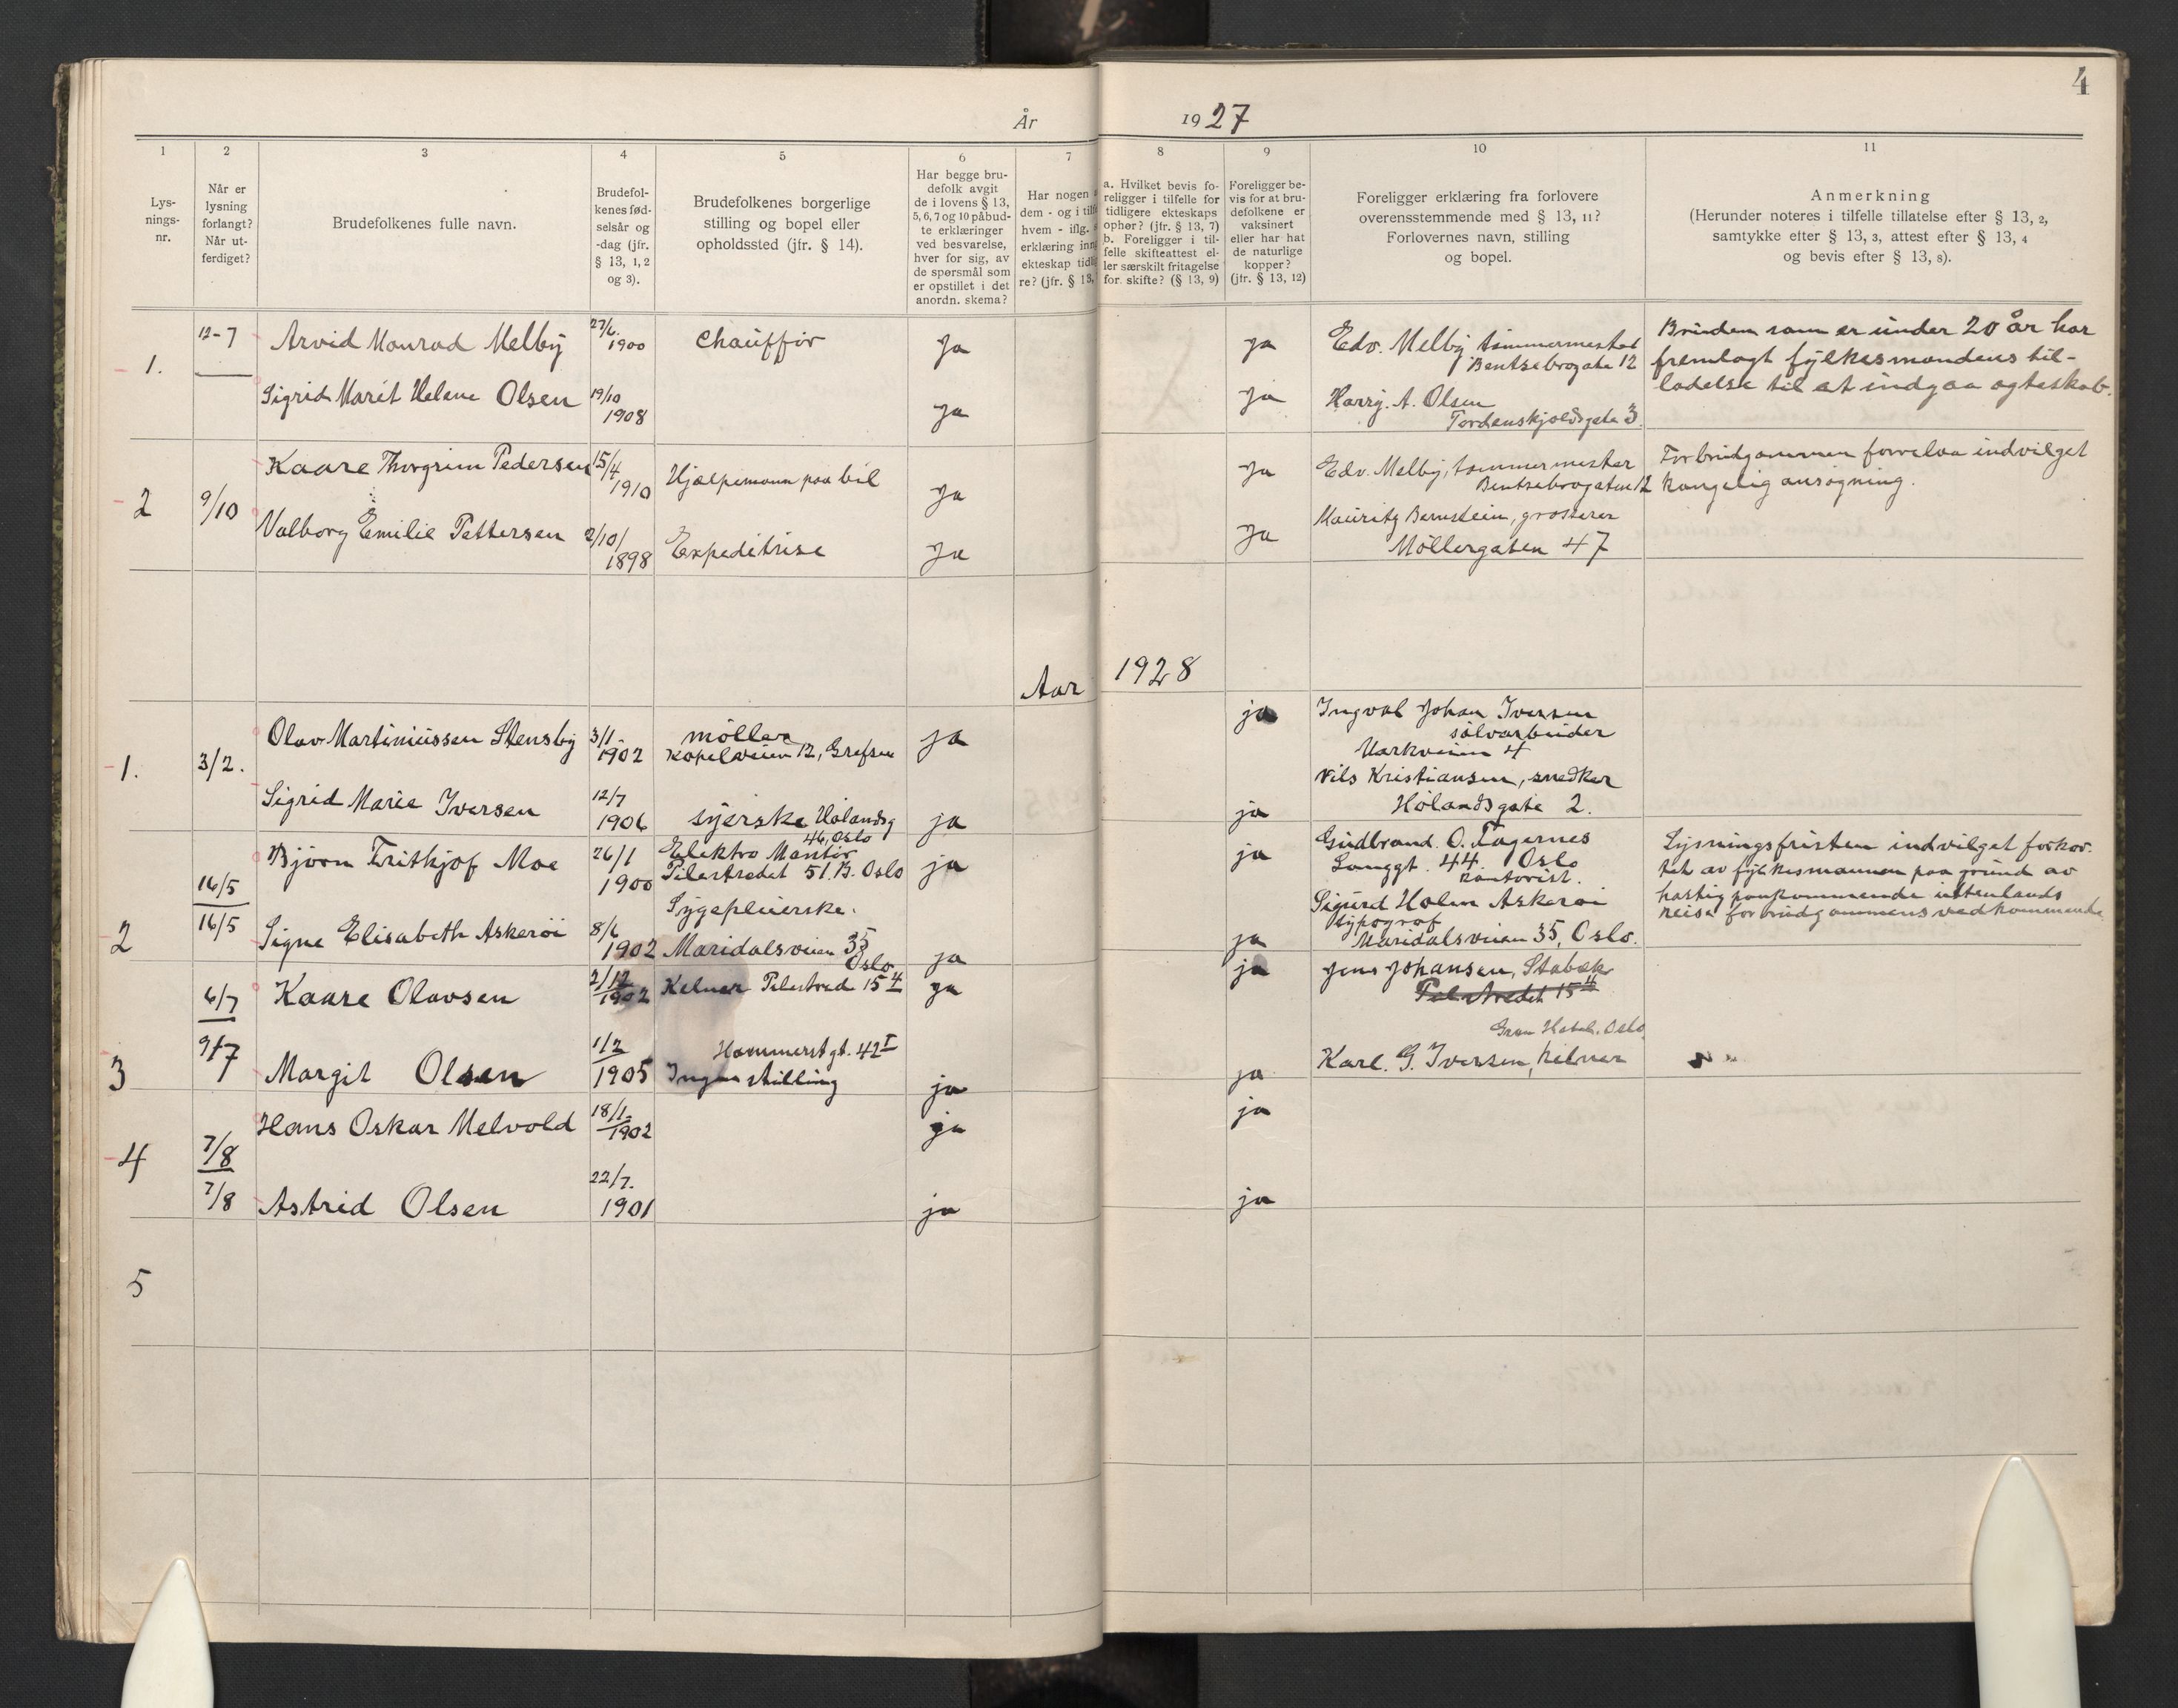 4
År 1927
1
2
3
4
5
6
7
8
9
10
11
Lys-
nings-
nr.
Når er
lysning
forlangt?
Når ut-
ferdiget?
Brudefolkenes fulle navn.
Brudefol-
kenes fød-
selsår og
-dag (jfr.
§ 13, 1, 2
og 3).
Brudefolkenes borgerlige
stilling og bopel eller
opholdssted (jfr. § 14).
Har begge bru-
defolk avgit
de i lovens § 13,
5, 6, 7 og 10 påbud-
te erklæringer
ved besvarelse,
hver for sig, av
de spørsmål som
er opstillet i det
anordn. skema?
Har nogen
dem - og i tilf
hvem - iflg.
erklæring inn
ekteskap tidl
re? (jfr. § 13,
a. Hvilket bevis fo-
religger i tilfelle for
tidligere ekteskaps
ophør? (jfr. § 13, 7)
b. Foreligger i til-
felle skifteattest el-
ler særskilt fritagelse
for skifte? (§ 13, 9)
Foreligger be-
vis for at bru-
defolkene er
vaksinert
eller har hat
de naturlige
kopper?
(jfr. § 13, 12)
Foreligger erklæring fra forlovere
overensstemmende med § 13, 11?
Forlovernes navn, stilling
og bopel.
Anmerkning
(Herunder noteres i tilfelle tillatelse efter § 13, 2,
samtykke efter § 13, 3, attest efter § 13, 4
og bevis efter § 13, 8).
1.
12-7
Arvid Monrad Melby
27/6.
1900
Chauffør
Ja
Ja
Edv. Melby tømmermester
Bentsebrogate 12
Bruden som er under 20 år har
fremlagt fylkesmandens til-
ladelse til at indgaa ægteskab.
Sigrid Marit Helene Olsen
19/10
1908
Ja
Ja
Harry. A. Olsen
Tordenskjoldsgate 3.
2
9/10
Kaare Thorgrim Pedersen
15/4
1910
Hjælpemann paa bil
Ja
Ja
Edv. Melby, tømmermester
Bentsebrogaten 12
For brudgommen forelaa indvilget
kongelig ansøgning.
Valborg Emilie Pettersen
2/10/
1898
Expeditrise
Ja
Ja
Mauritz Bernstein, grosserer
Møllergaten 47
Aar 1928
1.
3/2.
Olav Martiniussen Stensby
3/1
1902
møller
Kapelveien 12, Grefsen
ja
ja
Ingval Johan Iversen
sølvarbeider
Markveien 4
Sigrid Marie Iversen
12/7
1906
syerske Hølandsg
46, Oslo
ja
ja
Nils Kristiansen, snedker
Hølandsgate 2.
2
16/5
16/5
Bjørn Fritkjof Moe
26/1
1900
Elektro Montør
Pilestredet 51.B. Oslo
ja
ja
Gudbrand. O. Fagernes
Langgt. 44. Oslo
kontorist.
Lysningsfristen indvilget forkor-
tet av fylkesmannen paa grund av
hastig paakommende uttenlands
reise for brudgommens vedkommende
Signe Elisabeth Askerøi
8/6
1902
Sygepleierske.
Maridalsveien 35
Oslo
ja
ja
Sigurd Holm Askerøi
typograf
Maridalsveien 35, Oslo.
3
6/7
9/7
Kaare Olavsen
2/12
1902
Kelner Pilestred 15 4
ja
ja
Jens Johansen, Stabæk
Pilestredet 15 4
Margit Olsen
1/2
1905
Hammerst gt. 42 I
Ingen stilling
ja
ja
Gran Hotel. Oslo
Karl. G. Iversen, kelner
4
7/8
7/8
Hans Oskar Melvold
18/1
1902
ja
ja
Astrid Olsen
22/7.
1901
ja
ja
5